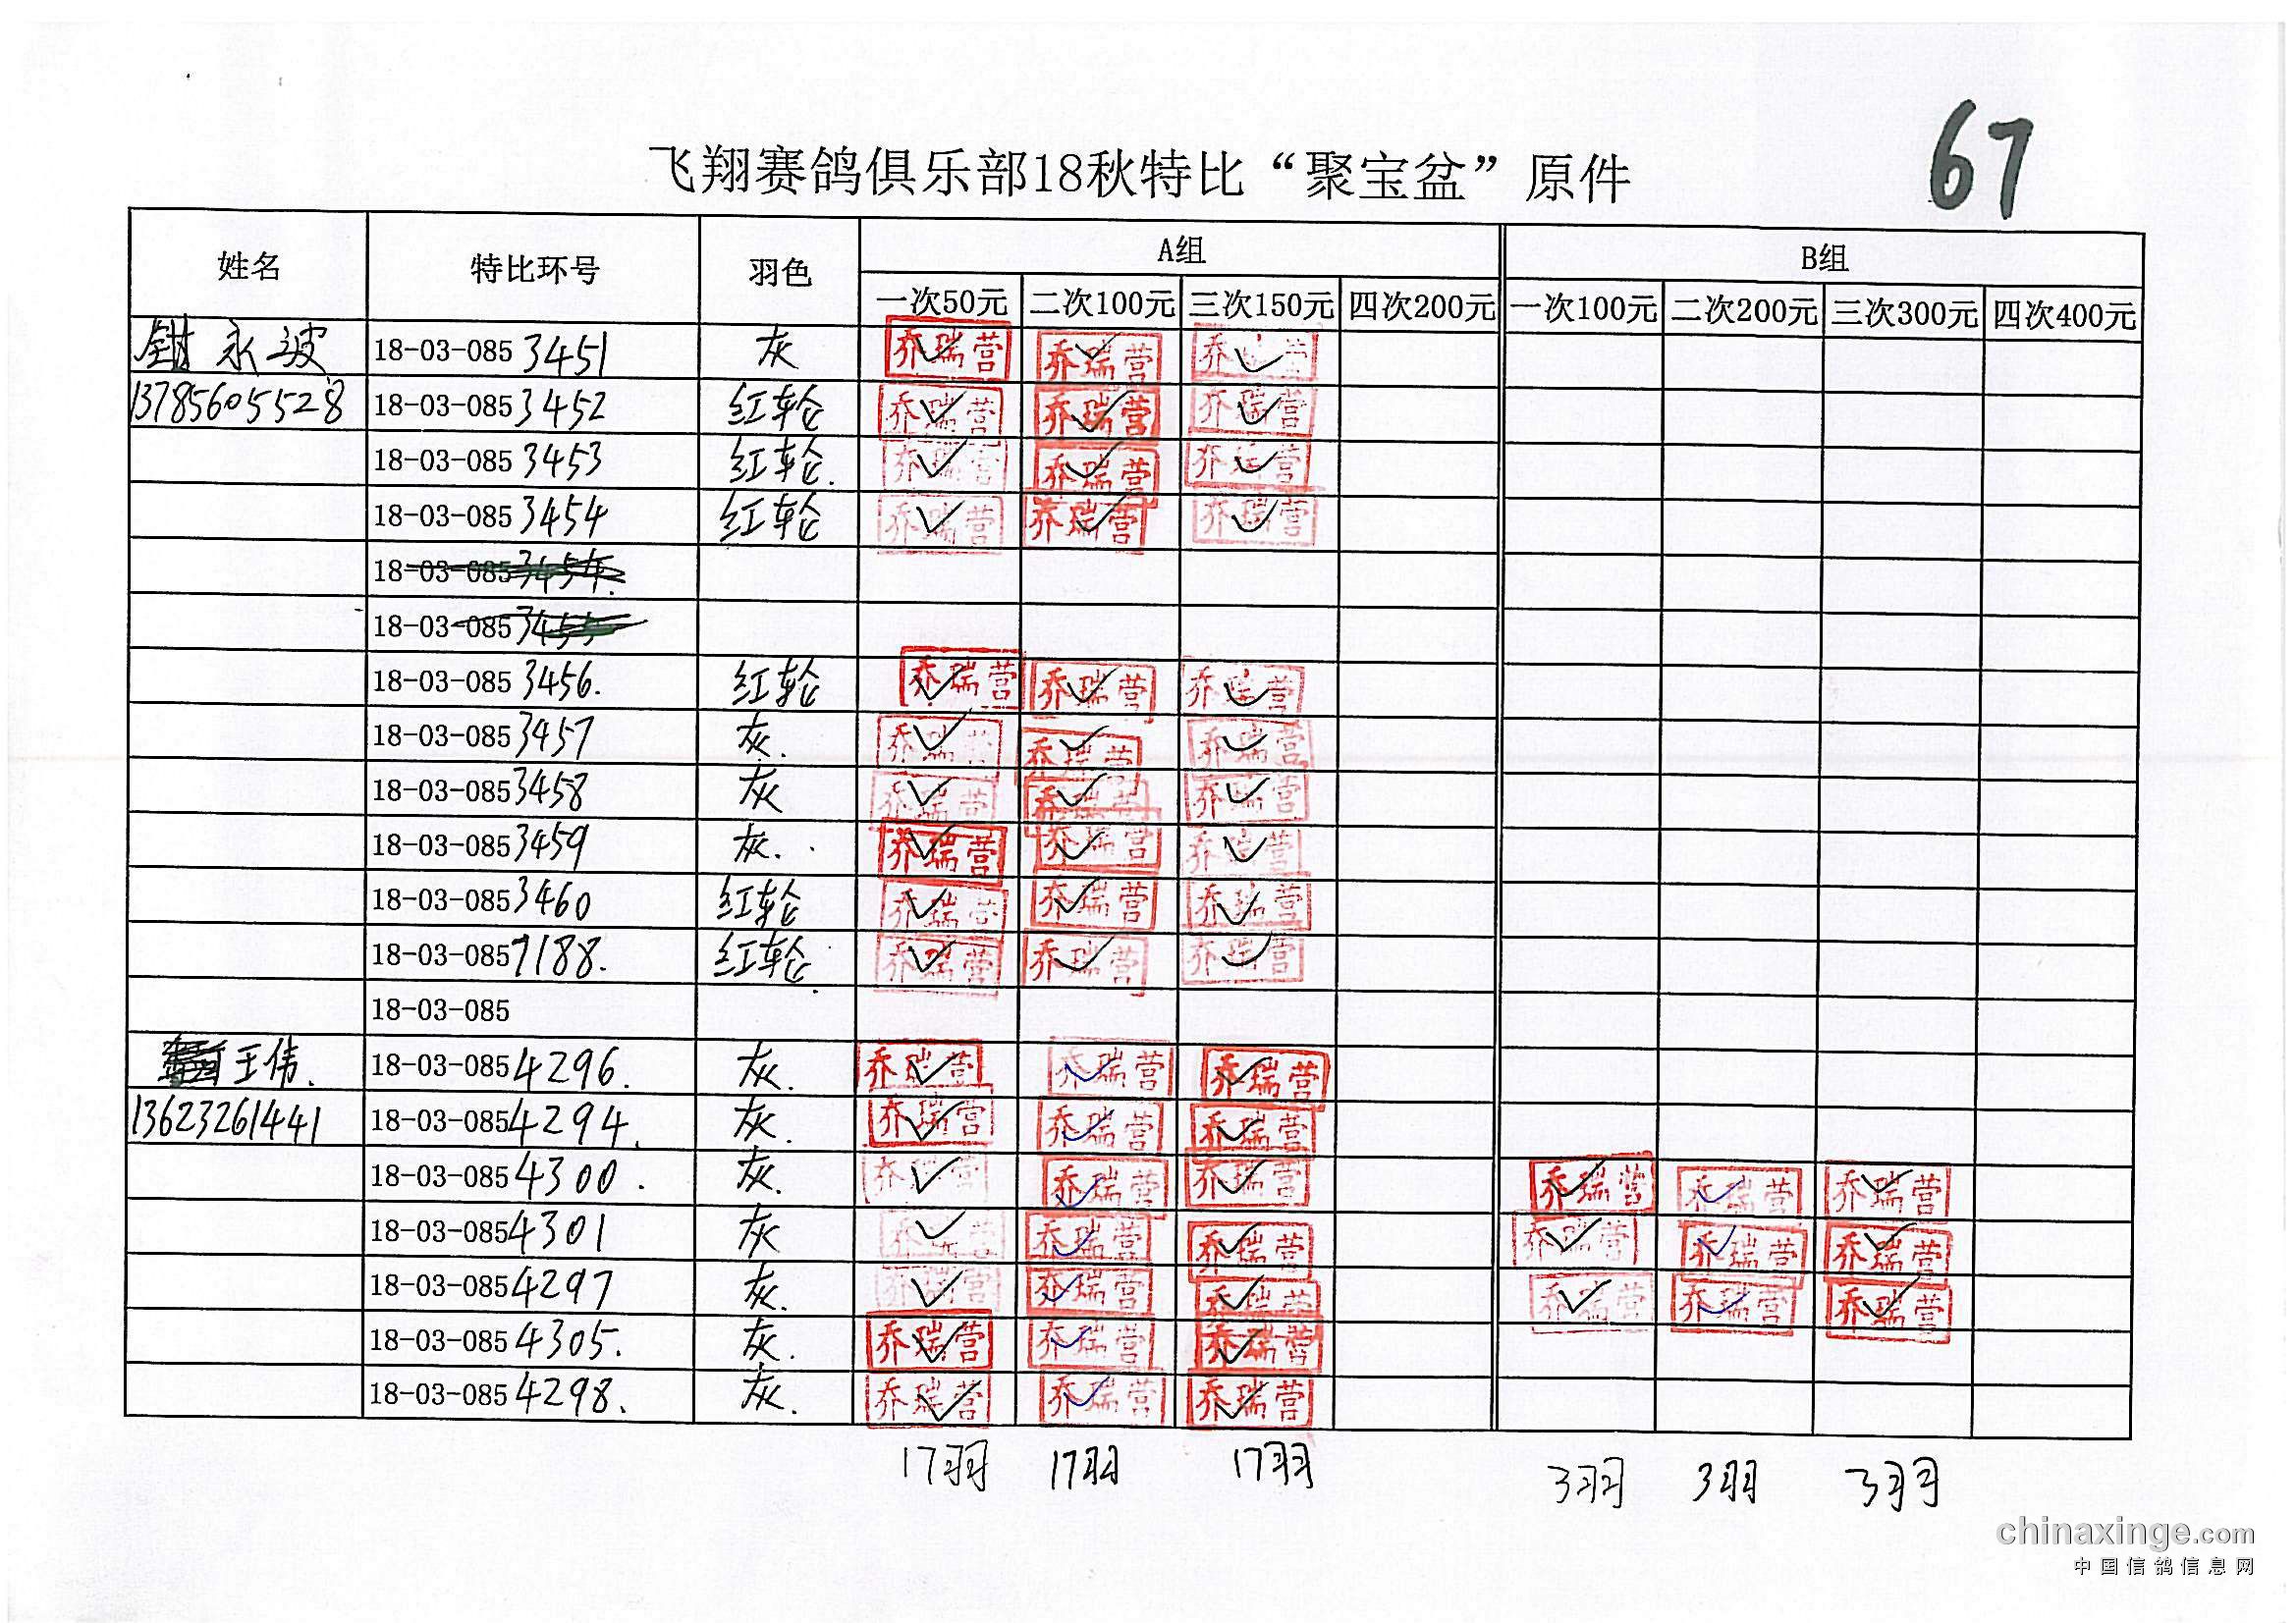 67
飞翔赛鸽俱乐部18秋特比“聚宝盆”原件
姓名 特比环号 羽色 A组 B组
一次50元 二次100元 三次150元 四次200元 一次100元 二次200元 三次300元 四次400元
永波 18-03-085 3451 灰 乔瑞营 乔瑞营 乔瑞营
13785605528 18-03-085 3452 红轮 乔瑞营 乔瑞营 乔瑞营
18-03-085 3453 红轮. 乔瑞营 乔瑞营 乔瑞营
18-03-085 3454 红轮 乔瑞营 乔瑞营 乔瑞营
18-03-085 3454.
18-03-085 3455
18-03-085 3456. 红轮 乔瑞营 乔瑞营 乔瑞营
18-03-085 3457 灰. 乔瑞营 乔瑞营 乔瑞营
18-03-085 3458 灰 乔瑞营 乔瑞营 乔瑞营
18-03-085 3459 灰. 乔瑞营 乔瑞营 乔瑞营
18-03-085 3460 红轮 乔瑞营 乔瑞营 乔瑞营
18-03-085 7188. 红轮. 乔瑞营 乔瑞营 乔瑞营
18-03-085
王伟. 18-03-085 4296. 灰. 乔瑞营 乔瑞营 乔瑞营
13623261441 18-03-085 4294. 灰. 乔瑞营 乔瑞营 乔瑞营
18-03-085 4300. 灰. 乔瑞营 乔瑞营 乔瑞营 乔瑞营 乔瑞营 乔瑞营
18-03-085 4301 灰 乔瑞营 乔瑞营 乔瑞营 乔瑞营 乔瑞营 乔瑞营
18-03-085 4297 灰. 乔瑞营 乔瑞营 乔瑞营 乔瑞营 乔瑞营 乔瑞营
18-03-085 4305. 灰. 乔瑞营 乔瑞营 乔瑞营
18-03-085 4298. 灰. 乔瑞营 乔瑞营 乔瑞营
17羽 17羽 17羽 3羽 3羽 3羽
chinaxinge.com
中国信鸽信息网